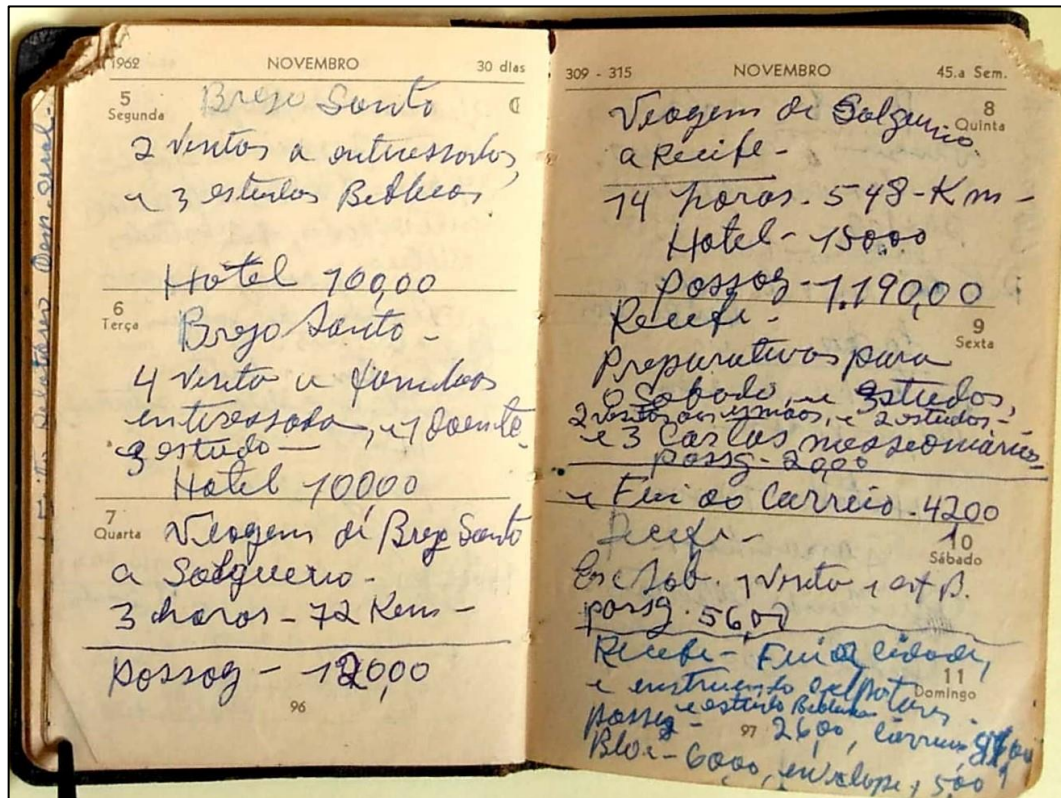 1962 NOVEMBRO 30 dias
5
Segunda
Brejo Santo
2 Visitas a enteressados,
e 3 estudos Biblicos
Hotel 100,00
6
Terça
Brejo Santo -
4 Visita a familias
enteressada, e 1 doente
3 estudo -
Hotel 100,00
7
Quarta
Viagem de Brejo Santo
a Salgueiro -
3 horas - 72 Kem -
passag - 120,00
96
309 - 315 NOVEMBRO 45.a Sem.
8
Quinta
Viagem de Salgueiro
a Recife -
14 horas - 548 - Km -
Hotel - 150,00
passag - 1.190,00
9
Sexta
Recife -
Preparativos para
o Sabado, e estudos,
2 visitas aos irmãos, e 2 estudos -
e 3 Cartas messeonarias
passg - 20,00
e Fui ao Correio - 4200
10
Sábado
Recife -
Esc Sab. 1 Visita
passg. 56,00
11
Domingo
Recife - Fui a cidade,
e enstruendo Colportores -
e estudo Biblicos
passg - 26,00, Correio
97
60,00, envelope, 5,00